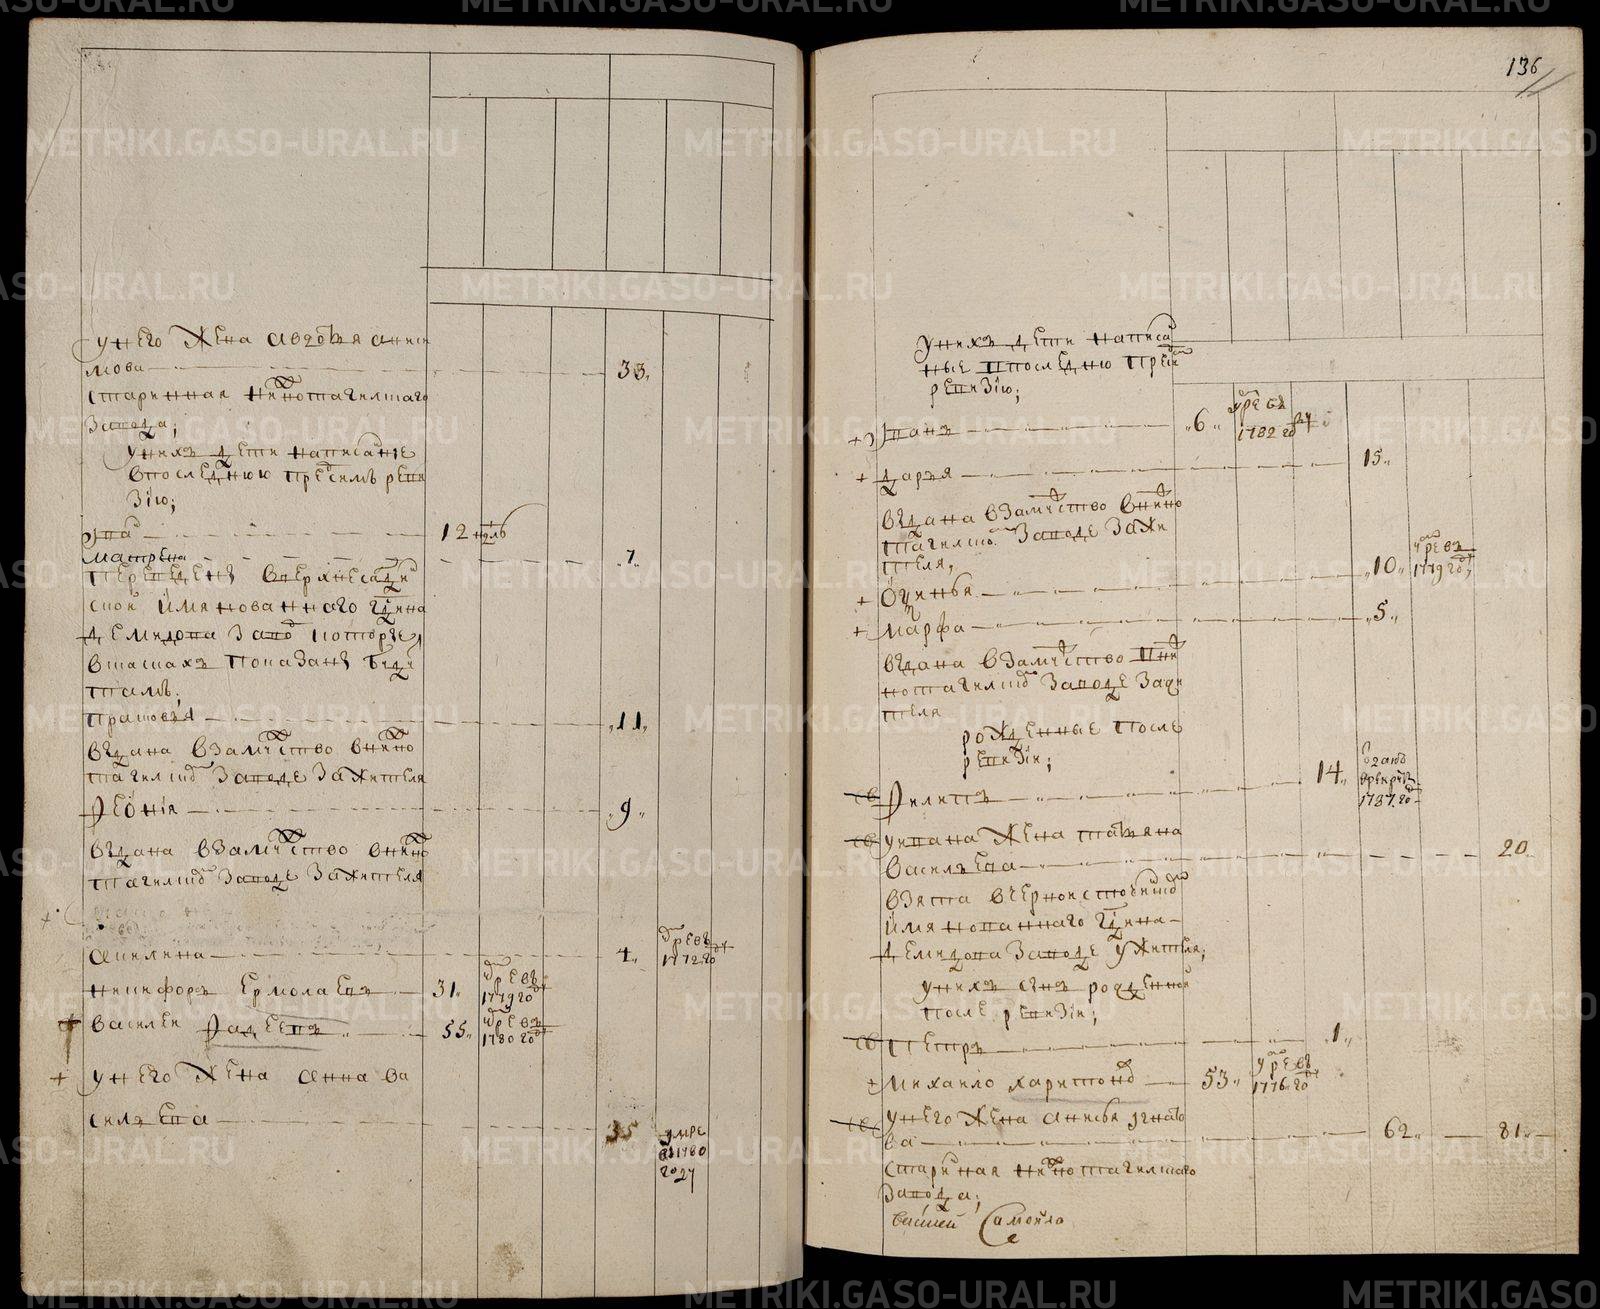 у него жена авдотья аниси
мова 33
старинная нижнотагилскаго
завода;
у них дети написание
в последнюю пред сим реви
зию;
12
матрена 7
переведены в верхнесалди
ской имянованного гдина
демидова завод которые
в штатах показаны будут
тамъ;
прасковья 11
выдана в замужство в нижно
тагилском заводе за жителя
ѳеония 9
выдана в замужство в нижно
тагилском заводе за жителя
акилина 4 умре въ 1772 году
никифоръ ермолаевъ 31 умре въ 1779 году
василеи ѳадеевъ 55 умре въ 1780 году
у него жена анна ва
сильева 35 умре въ 1780 году
136
у нихъ дети написа
ные в последнюю пред сим
ревизию;
иванъ 6 умре въ 1782 году
дарья 15
выдана в замужство в нижно
тагилском заводе за жи
теля,
офимья 10 умре въ 1779 году
марфа 5
выдана в замужство в ниж
нотагилском заводе за жи
теля
рожденные после
ревизии;
филипъ 14 взданъ в рекруты 1787 году
у ивана жена татьяна
васильева 20
взята в черноисточинском
имянованного гдина
демидова заводе у жителя;
у нихъ сынъ рожденной
после ревизии;
петръ 1
михаило харитонов 53 умре въ 1776 году
у него жена анисья игнатье
ва 62 81
старинная нижнотагилскаго
завода;
василей самойло